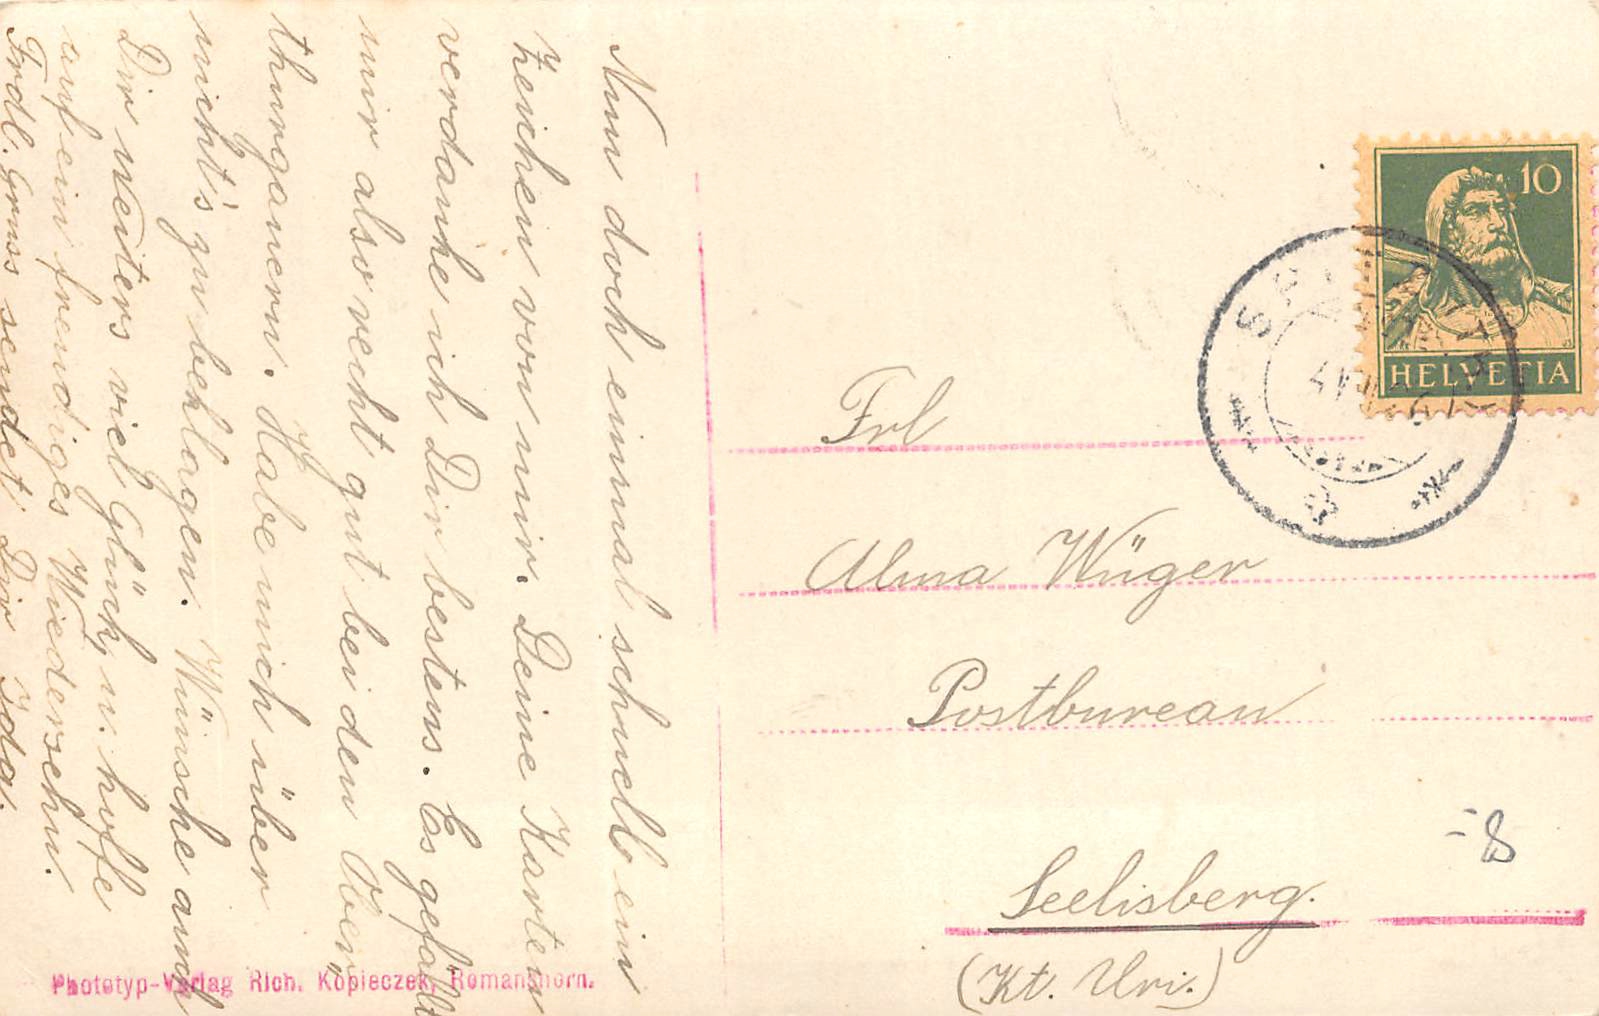 Nun doch einmal schnell ein
Zeichen von mir. Deine Karten
verdanke ich Dir bestens. Es gefällt
mir also recht gut bei den Ober-
thurgauern. Habe mich über
nicht's zu beklagen. Wünsche auch
Dir weiters viel Glück u. hoffe
auf ein freudiges Wiedersehn.
Frdl. Gruss sendet Dir Ida.
Phototyp-Verlag Rich. Kopieczek, Romanshorn.
10
HELVETIA
Frl
Alma Wüger
Postbureau
Seelisberg.
(Kt. Uri.)